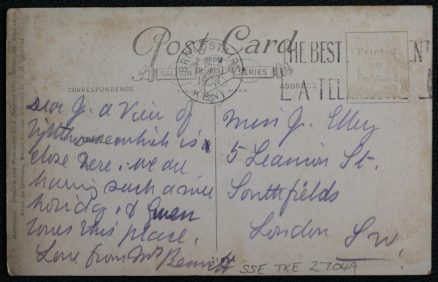 Post Card
BROADSTAIRS
KENT
THE BEST
SALMON SERIES
Printed
in
England
CORRESPONDENCE
ADDRESS
A TEL
Dear J. a View of
lighthouse which is
close here. we are
having such a nice
holiday, & Gwen
loves this place.
Love from Mrs Bennett
Miss J. Elley
5 St.
Southfields
London S.W.
SSE TKE 27049